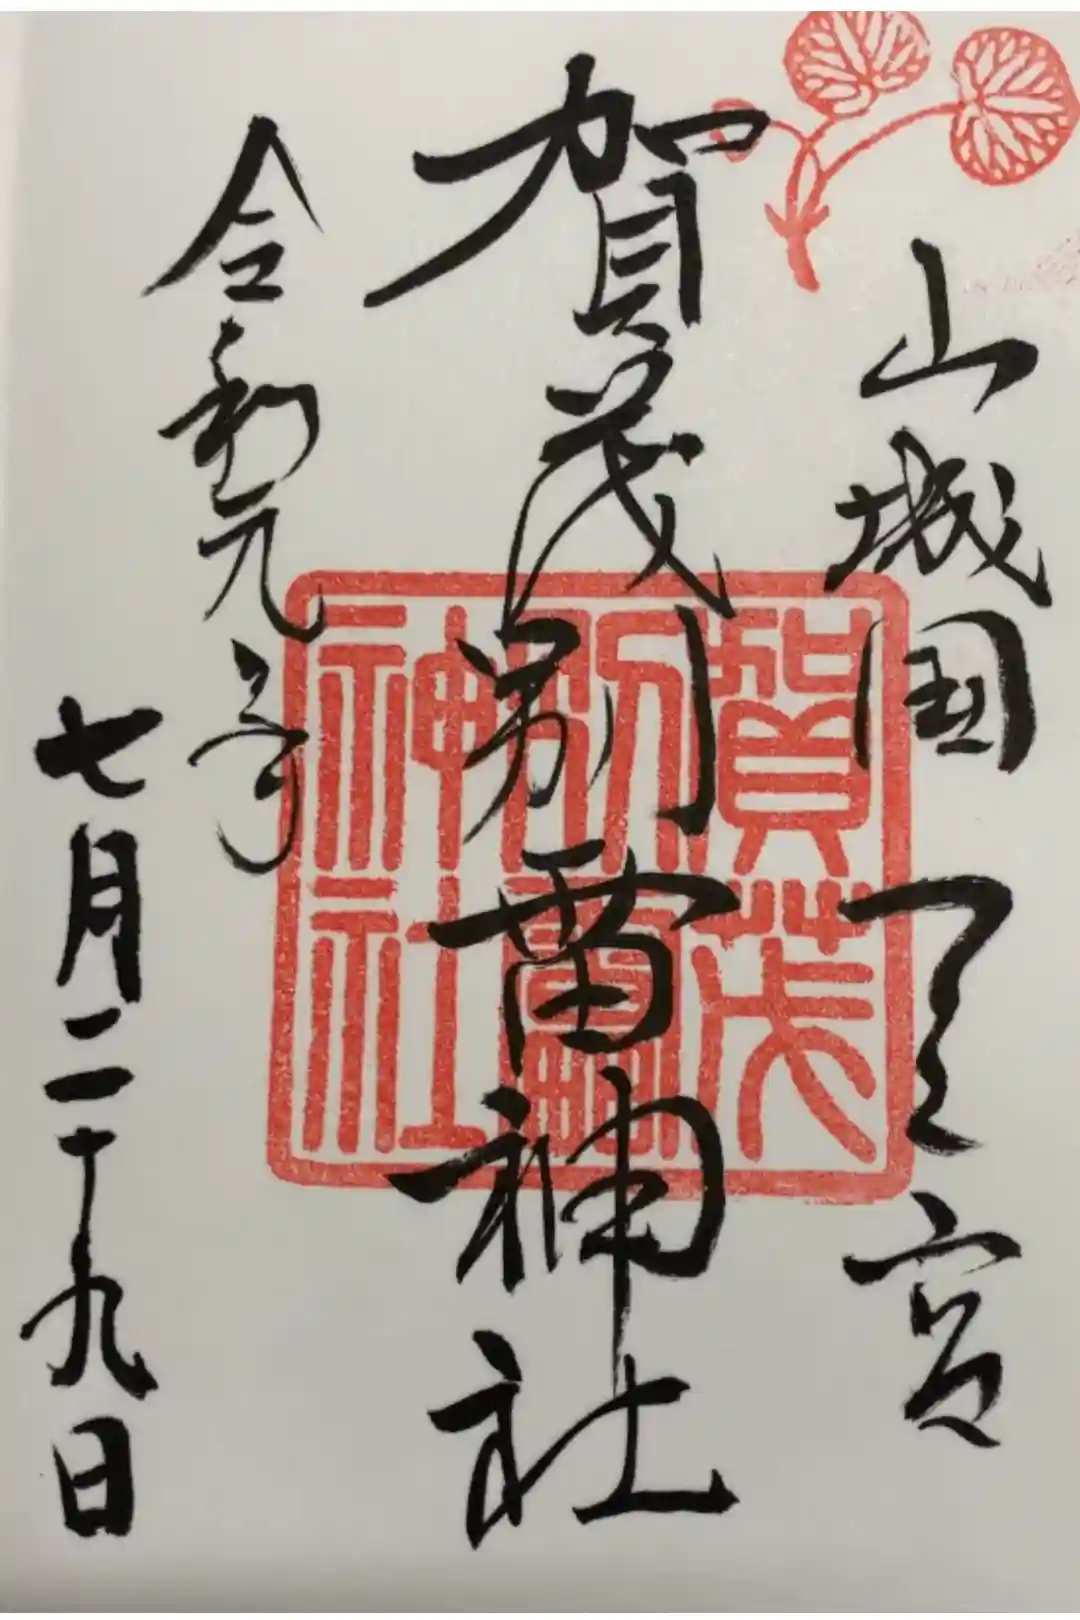 山城国一之宮
賀茂別雷神社
令和元年
七月二十九日
賀茂
別雷
神社